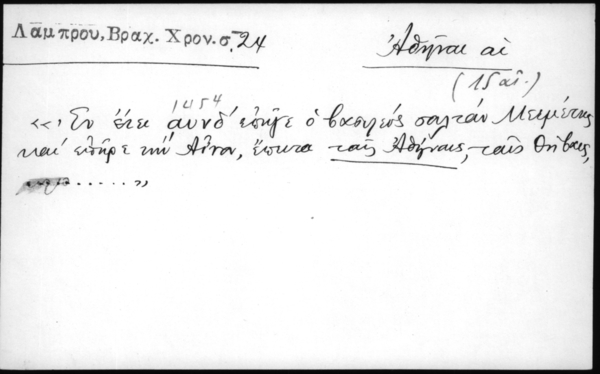 Λάμπρου, Βραχ. Χρον. σ. 24
Ἀθῆναι αἱ
(15 αἰ.)
1454
«Ἐν ἔτει ͵αυνδʹ ἐπῆγε ὁ βασιλεὺς σουλτὰν Μεεμέτης
καὶ ἐπῆρε τὴν Αἶνο, ἔπειτα ταῖς Ἀθήναις, ταῖς Θήβαις,
......»